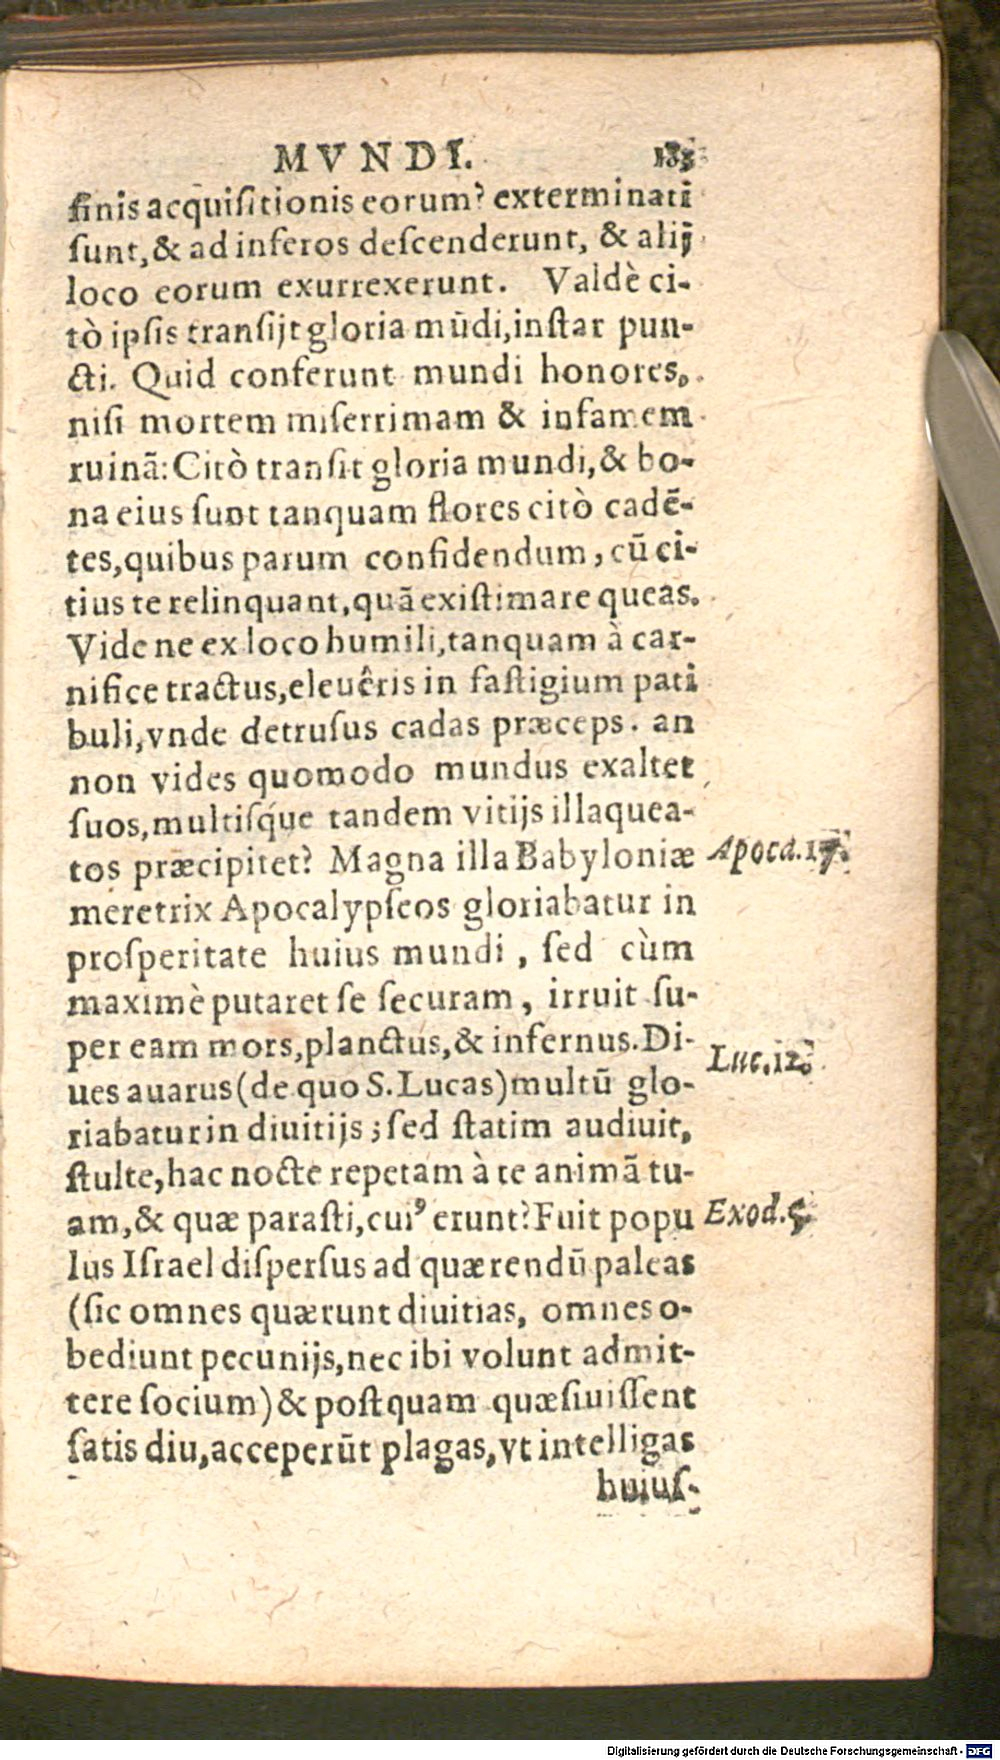 MVNDI. 185
finis acquisitionis eorum? exterminati
sunt, & ad inferos descenderunt, & alij
loco eorum exurrexerunt. Valdè ci-
tò ipsis transijt gloria mūdi, instar pun-
cti. Quid conferunt mundi honores,
nisi mortem miserrimam & infamem
ruinā: Citò transit gloria mundi, & bo-
na eius sunt tanquam flores citò cadē-
tes, quibus parum confidendum, cū ci-
tius te relinquant, quā existimare queas.
Vide ne ex loco humili, tanquam à car-
nifice tractus, eleuêris in fastigium pati
buli, vnde detrusus cadas præceps. an
non vides quomodo mundus exaltet
suos, multisq́ue tandem vitijs illaquea-
tos præcipitet? Magna illa Babyloniæ
Apoca. 17.
meretrix Apocalypseos gloriabatur in
prosperitate huius mundi, sed cùm
maximè putaret se securam, irruit su-
per eam mors, planctus, & infernus. Di-
Luc. 12.
ues auarus (de quo S. Lucas) multū glo-
riabatur in diuitijs; sed statim audiuit,
stulte, hac nocte repetam à te animā tu-
am, & quæ parasti, cuiꝰ erunt? Fuit popu
Exod. 5.
lus Israel dispersus ad quærendū paleas
(sic omnes quærunt diuitias, omnes o-
bediunt pecunijs, nec ibi volunt admit-
tere socium) & postquam quæsiuissent
satis diu, acceperūt plagas, vt intelligas
huius-
Digitalisierung gefördert durch die Deutsche Forschungsgemeinschaft - DFG